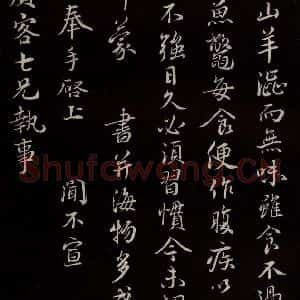 山羊澁而無味雖食不過
魚鼈每食便作腹疾以
不強日久必須習慣今未
蒙　書并海物多
聞不宣
奉手啓上
客七兄執事
Shufawang.CN